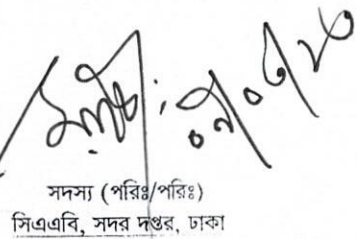 সদস্য (পরিঃ/পরিঃ)
সিএএবি, সদর দপ্তর, ঢাকা